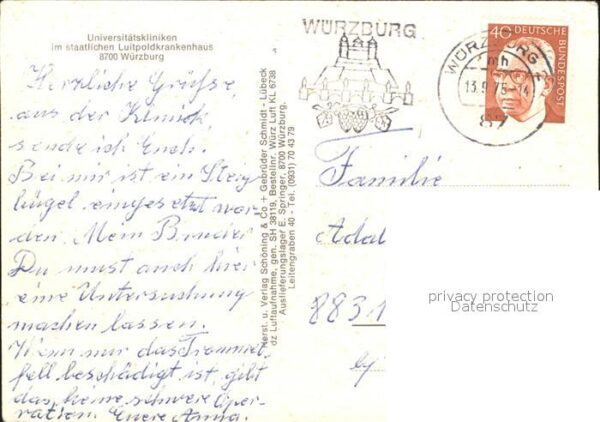 Universitätskliniken
im staatlichen Luitpoldkrankenhaus
8700 Würzburg
Herzliche Grüße
aus der Klinik
sende ich Euch.
Bei mir ist ein Steig
bügel eingesetzt wor
den. Mein Bruder
Du must auch hier
eine Untersuchung
machen lassen.
Wenn nur das Trommel
fell beschädigt ist, gibt
das keine schwere Ope-
ration. Euere Anna.
Herst. u. Verlag Schöning & Co + Gebrüder Schmidt - Lübeck
dz Luftaufnahme, gen. SH 38119, Bestellnr. Würz Luft KL 6738
Auslieferungslager E. Springer, 8700 Würzburg,
Leitengraben 40 Tel. (0931) 70 43 79
WÜRZBURG
WÜRZBURG
mh
13.9.75-14
87
40 DEUTSCHE
BUNDESPOST
Familie
Adal
8831
privacy protection
Datenschutz